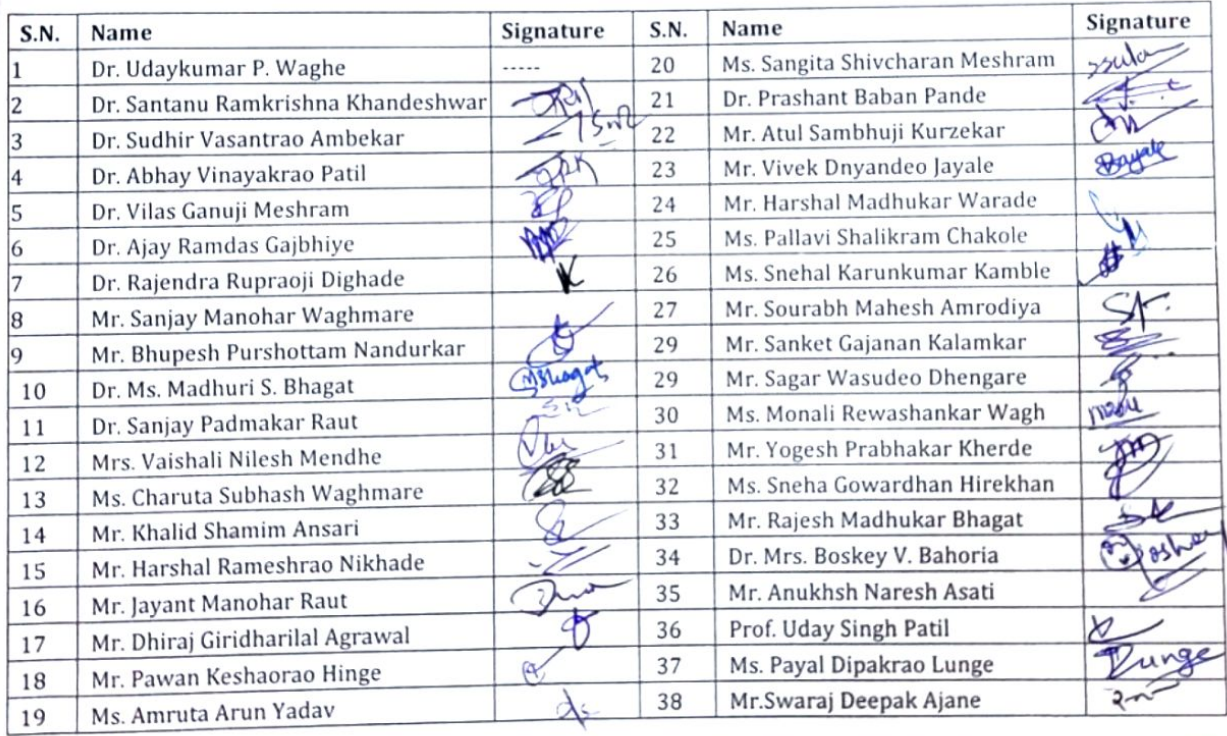 S.N. Name Signature S.N. Name Signature
1 Dr. Udaykumar P. Waghe ----- 20 Ms. Sangita Shivcharan Meshram
2 Dr. Santanu Ramkrishna Khandeshwar 21 Dr. Prashant Baban Pande
3 Dr. Sudhir Vasantrao Ambekar 22 Mr. Atul Sambhuji Kurzekar
4 Dr. Abhay Vinayakrao Patil 23 Mr. Vivek Dnyandeo Jayale
5 Dr. Vilas Ganuji Meshram 24 Mr. Harshal Madhukar Warade
6 Dr. Ajay Ramdas Gajbhiye 25 Ms. Pallavi Shalikram Chakole
7 Dr. Rajendra Rupraoji Dighade 26 Ms. Snehal Karunkumar Kamble
8 Mr. Sanjay Manohar Waghmare 27 Mr. Sourabh Mahesh Amrodiya
9 Mr. Bhupesh Purshottam Nandurkar 29 Mr. Sanket Gajanan Kalamkar
10 Dr. Ms. Madhuri S. Bhagat 29 Mr. Sagar Wasudeo Dhengare
11 Dr. Sanjay Padmakar Raut 30 Ms. Monali Rewashankar Wagh
12 Mrs. Vaishali Nilesh Mendhe 31 Mr. Yogesh Prabhakar Kherde
13 Ms. Charuta Subhash Waghmare 32 Ms. Sneha Gowardhan Hirekhan
14 Mr. Khalid Shamim Ansari 33 Mr. Rajesh Madhukar Bhagat
15 Mr. Harshal Rameshrao Nikhade 34 Dr. Mrs. Boskey V. Bahoria
16 Mr. Jayant Manohar Raut 35 Mr. Anukhsh Naresh Asati
17 Mr. Dhiraj Giridharilal Agrawal 36 Prof. Uday Singh Patil
18 Mr. Pawan Keshaorao Hinge 37 Ms. Payal Dipakrao Lunge
19 Ms. Amruta Arun Yadav 38 Mr.Swaraj Deepak Ajane